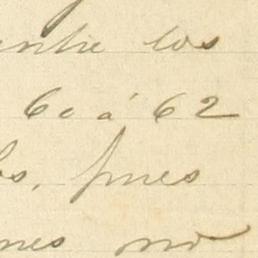 entre los
60 á 62
os, pues
nes no